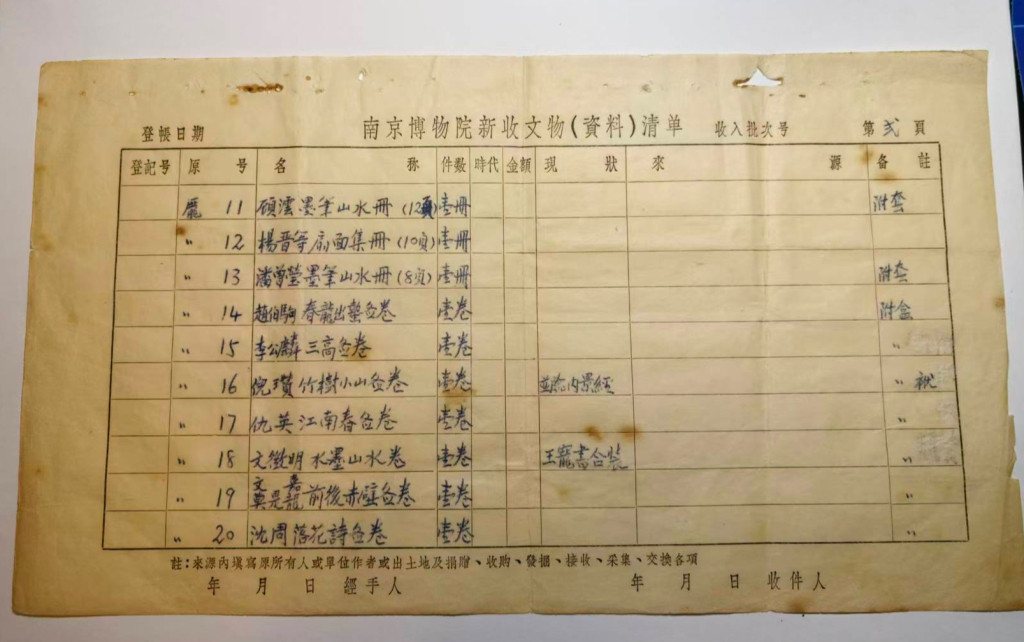 登帳日期 南京博物院新收文物(資料)清单 收入批次号 第 弍 頁
登記号 原号 名称 件数 時代 金額 現狀 來源 备註
龐 11 顾澐墨笔山水册 (12頁) 壹册 附套
〃 12 楊晋等扇面集册 (10頁) 壹册
〃 13 潘曾瑩墨笔山水册 (8頁) 壹册 附套
〃 14 趙伯駒 春龍出蟄圖卷 壹卷 附盒
〃 15 李公麟 三高圖卷 壹卷 〃
〃 16 倪瓚竹樹小山圖卷 壹卷 内景經 〃
〃 17 仇英江南春圖卷 壹卷 〃
〃 18 文徵明水墨山水卷 壹卷 王寵書合裝 〃
〃 19 文嘉 莫是龍 前後赤壁圖卷 壹卷 〃
〃 20 沈周落花詩圖卷 壹卷 〃
註：來源內填寫原所有人或單位作者或出土地及捐贈、收购、發掘、接收、采集、交換各項
年 月 日 經手人 年 月 日 收件人